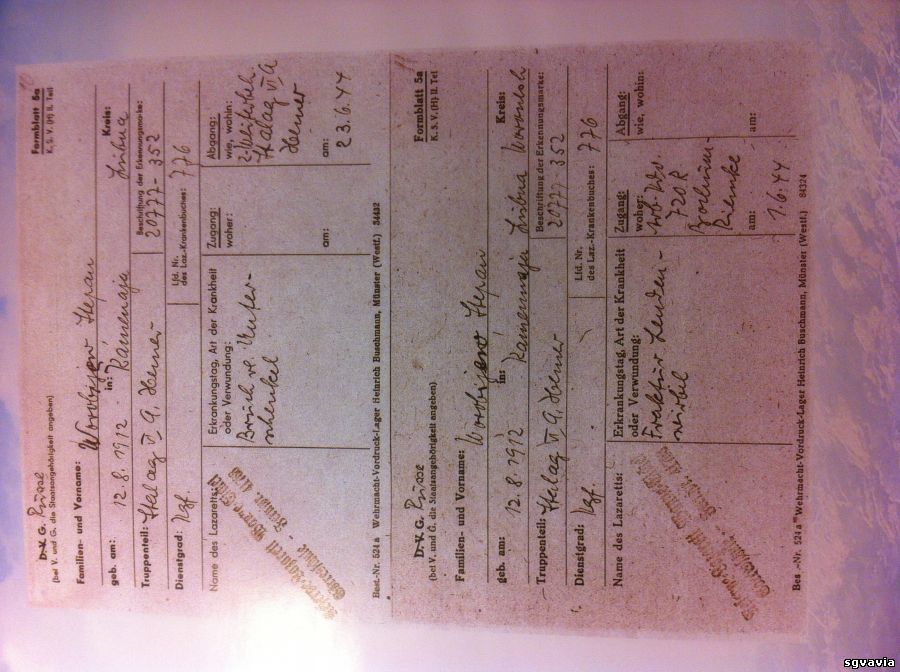 Formblatt 5a
K. S. V. (H) II. Teil
D.V. G. Russe
(bei V. und G. die Staatsangehörigkeit angeben)
Familien- und Vorname: Worobjew Stepan
geb. am: 12. 8. 1912 in: Kreis:
Truppenteil: Stalag VI A, Hemer
Beschriftung der Erkennungsmarke: 20777-352
Dienstgrad: Kgf.
Lfd. Nr. des Laz.-Krankenbuches: 776
Name des Lazaretts:
Erkrankungstag, Art der Krankheit
oder Verwundung:
Bruch re. Unter-
schenkel
Zugang:
woher:
am:
Abgang:
wie, wohin:
Stalag VI A
Hemer
am:
23.6.44
Best.-Nr. 524a Wehrmacht-Vordruck-Lager Heinrich Buschmann, Münster (Westf.)
Formblatt 5a
K. S. V. (H) II. Teil
D.V. G. Russe
(bei V. und G. die Staatsangehörigkeit angeben)
Familien- und Vorname: Worobjew Stepan
geb. am: 12. 8. 1912 in: Kreis:
Truppenteil: Stalag VI A, Hemer
Beschriftung der Erkennungsmarke: 20777-352
Dienstgrad: Kgf.
Lfd. Nr. des Laz.-Krankenbuches: 776
Name des Lazaretts:
Erkrankungstag, Art der Krankheit
oder Verwundung:
Fraktur Lenden-
wirbel
Zugang:
woher:
720 R
Bochum-
Riemke
am:
1.6.44
Abgang:
wie, wohin:
am:
Bes.-Nr. 524 a Wehrmacht-Vordruck-Lager Heinrich Buschmann, Münster (Westf.) 84324
sgvavia